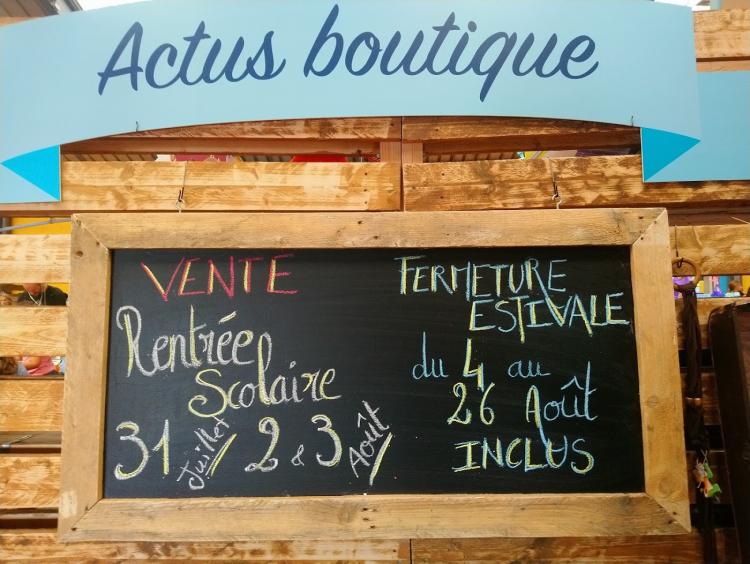 Actus boutique
VENTE
Rentrée
Scolaire
31 Juillet // 2 & 3 Août //
FERMETURE
ESTIVALE
du 4 au
26 Août
INCLUS